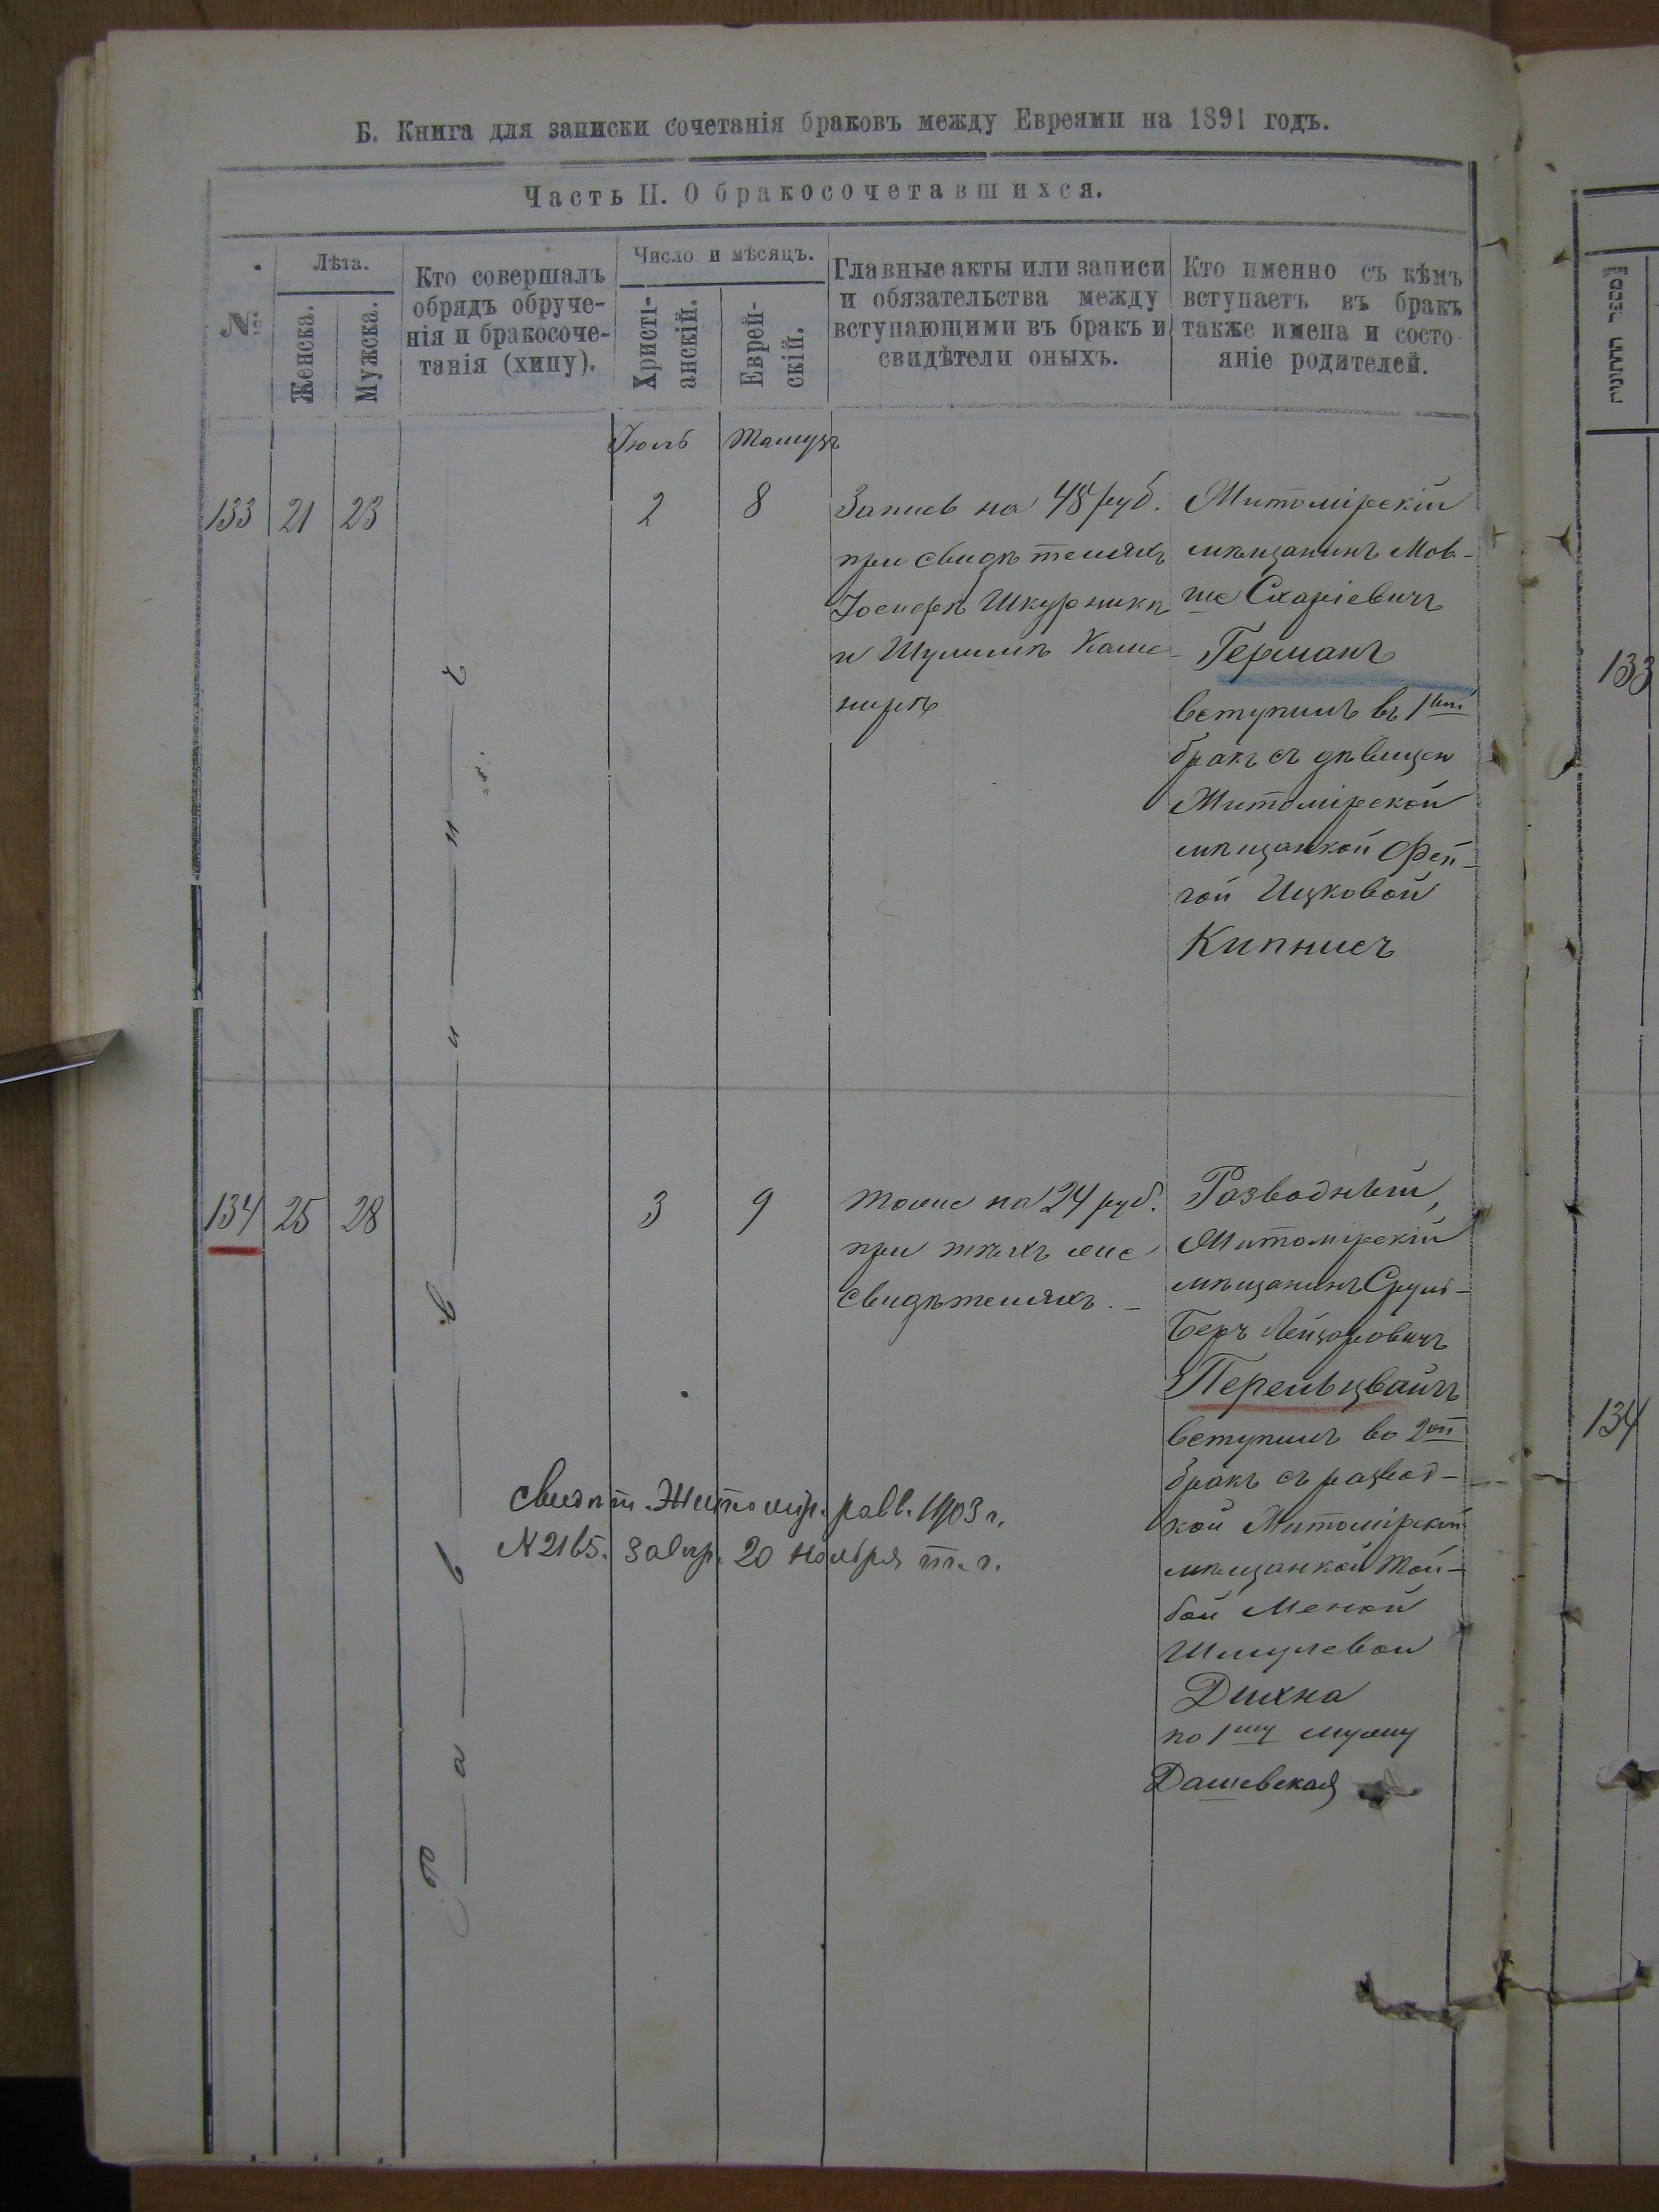 Б. Книга для записки сочетанія браковъ между Евреями на 1891 годъ.
Часть II. О бракосочетавшихся.
№
Лѣта.
Женска.
Мужска.
Кто совершалъ
обрядъ обруче-
нія и бракосоче-
танія (хипу).
Число и мѣсяцъ.
Христі-
анскій.
Еврей-
скій.
Главные акты или записи
и обязательства между
вступающими въ бракъ и
свидѣтели оныхъ.
Кто именно съ кѣмъ
вступаетъ въ бракъ
также имена и состо-
яніе родителей.
Іюль
Тамузъ
133
21
23
2
8
Запись на 48 руб.
при свидѣтеляхъ
Іосифѣ Шкурникѣ
и Шулимѣ Каше-
нирѣ
Житомірскій
мѣщанинъ Мов-
ше Схаріевичъ
Германъ
вступилъ въ 1ый
бракъ съ дѣвицею
Житомірской
мѣщанкой Фей-
гой Ицковой
Кипнисъ
Раввинъ
134
25
28
3
9
Тоже на 24 руб.
при тѣхъ же
свидѣтеляхъ. –
Разводный,
Житомірскій
мѣщанинъ Сруль-
Беръ Лейзоровичъ
Перельцвайгъ
вступилъ во 2ой
бракъ съ развод-
кой Житомірской
мѣщанкой Той-
бой Меной
Шмулевой
Дихна
по 1му мужу
Дашевская
свидѣт. Житомір. равв. 1903 г.
N 2165. завѣр. 20 ноября т. г.
ספר החתונות
133
134